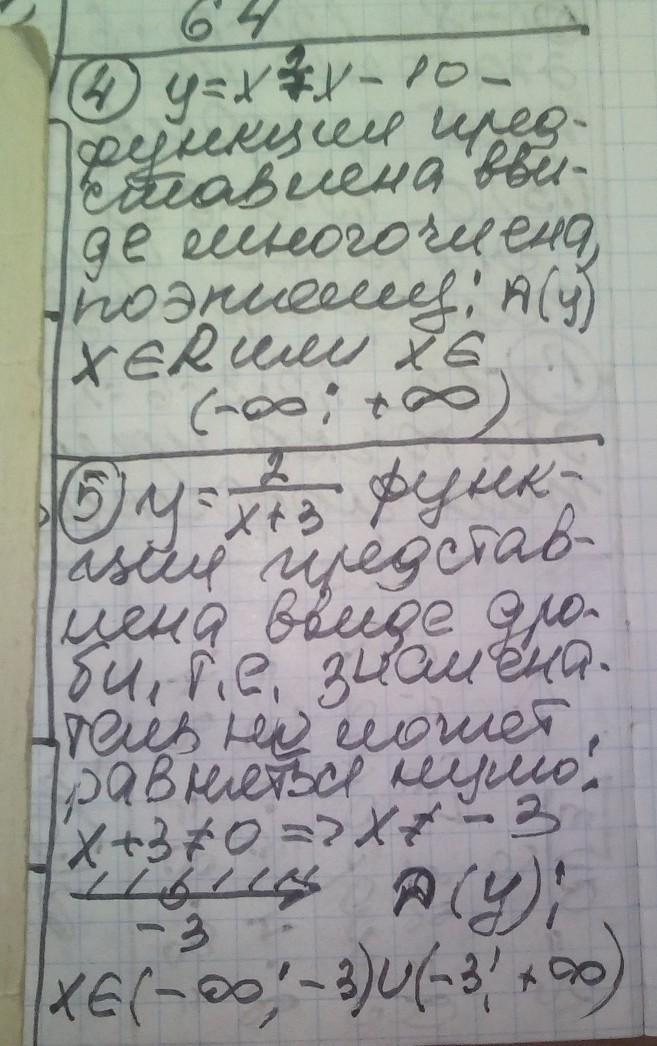 64
④ y=x²+x-10-
функция пред-
ставлена вви-
де многочлена,
поэтому: Д(у)
x∈R или x∈
(-∞; +∞)
⑤ y=2/(x+3) функ-
ция представ-
лена ввиде дро-
би, т.е. знамена-
тель не может
равняться нулю:
x+3≠0 => x≠-3
-3 Д(у):
x∈(-∞;-3)∪(-3;+∞)